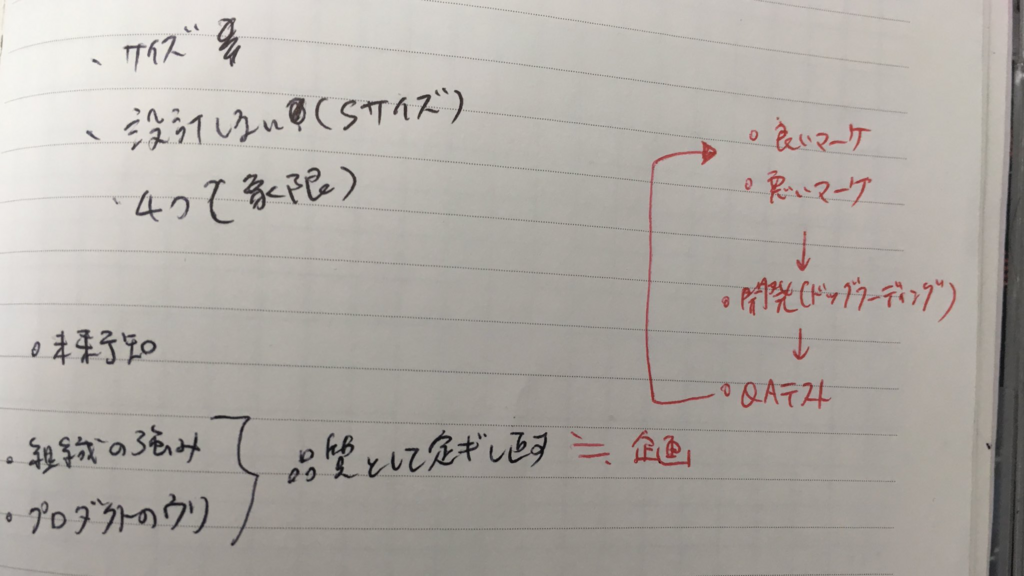 ・サイズ
・設計しない(Sサイズ)
・4つ(象限)
・未来予知
・組織の強み
・プロダクトのウリ
品質として定ぎし直す ≒ 企画
・良いマーケ
・悪いマーケ
↓
・開発(ドッグフーディング)
↓
・QAテスト